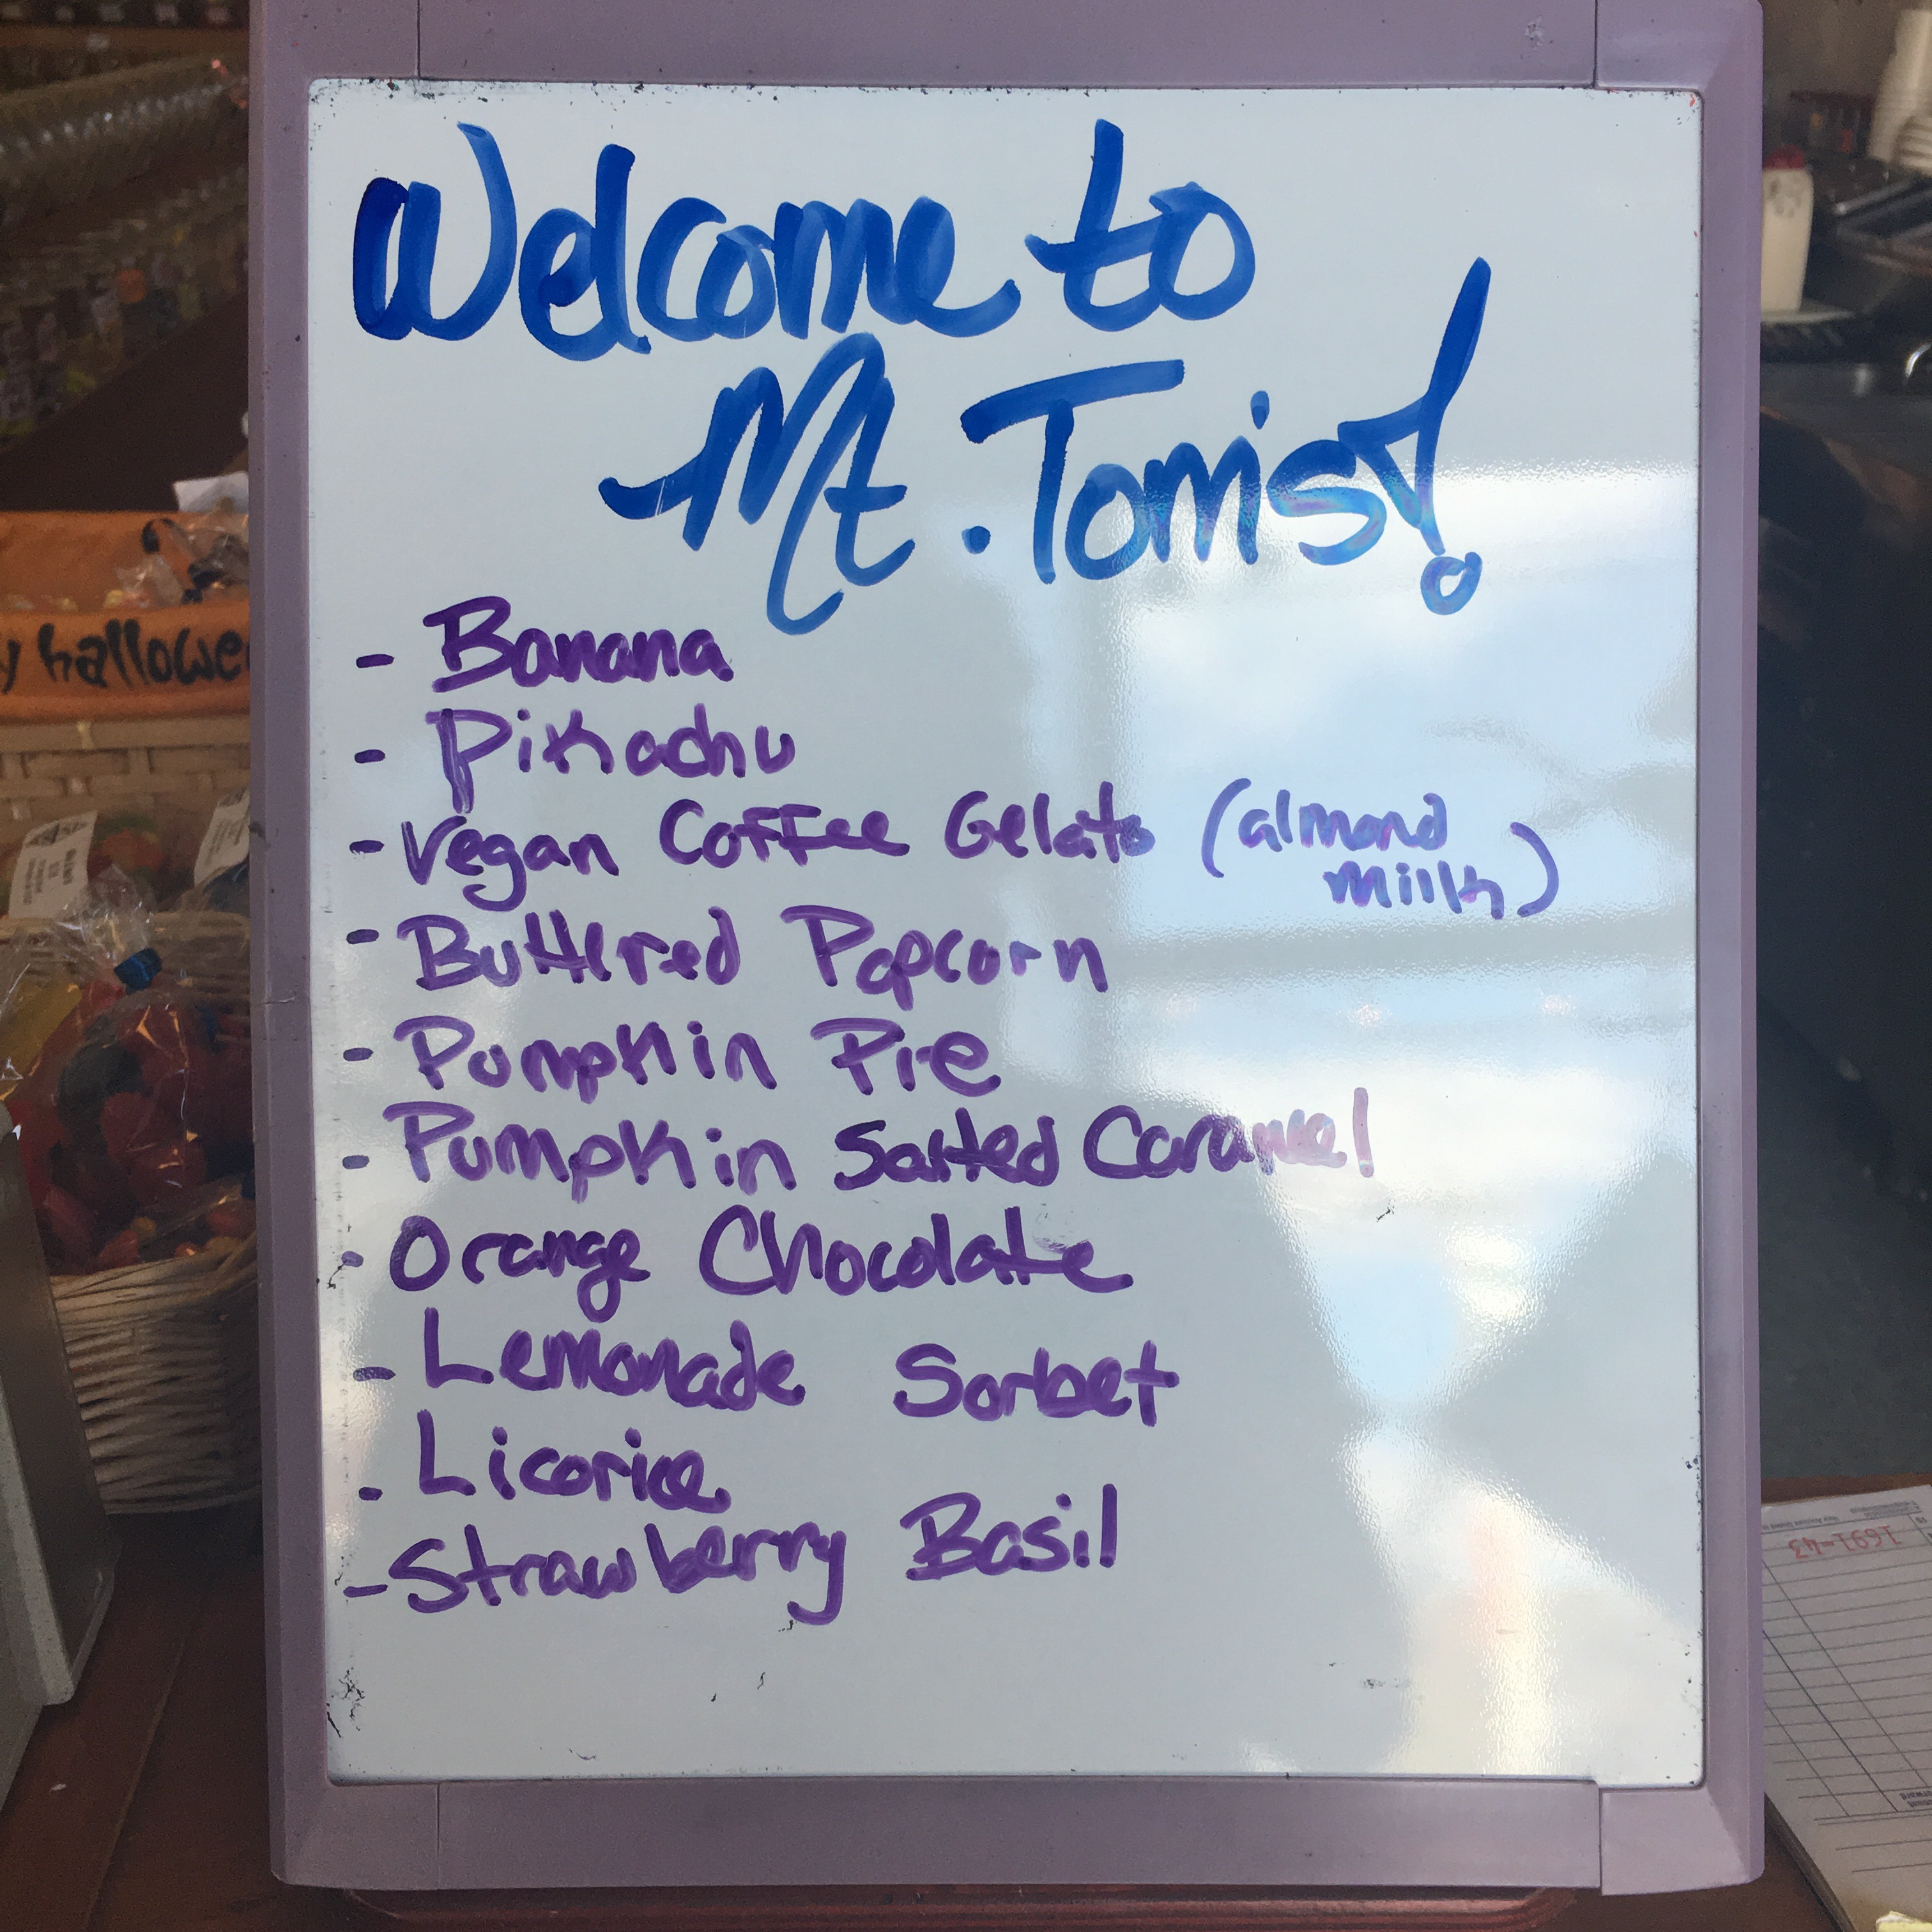 Welcome to
Mt. Tom's!
- Banana
- Pikachu
- Vegan Coffee Gelato (almond
milk)
- Buttered Popcorn
- Pumpkin Pie
- Pumpkin Salted Caramel
- Orange Chocolate
- Lemonade Sorbet
- Licorice
- Strawberry Basil
y hallowe
1691-43